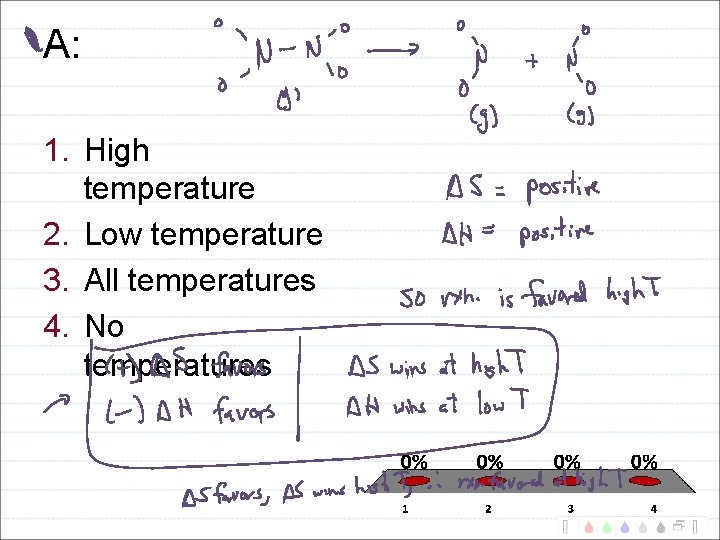 A:
O O O O
N – N → N + N
O O O O
(g) (g) (g)
1. High
temperature
2. Low temperature
3. All temperatures
4. No
temperatures
ΔS = positive
ΔH = positive
so rxn. is favored high T
(+) ΔS favors
(–) ΔH favors
ΔS wins at high T
ΔH wins at low T
0% 0% 0% 0%
ΔS favors, ΔS wins high T, ∴ rxn favored at high T
1 2 3 4